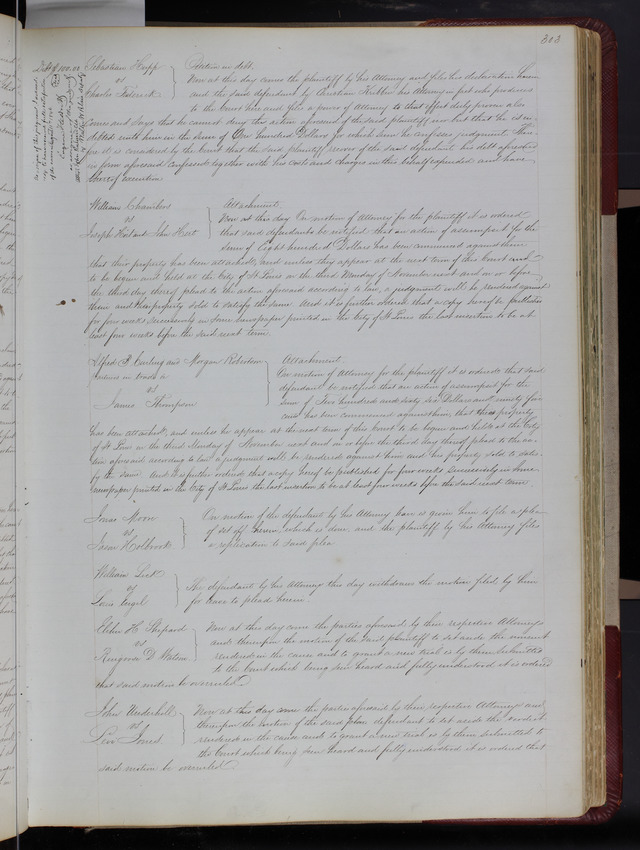 303
Debt $100.00
Sebastian Hupp } Petition in debt.
vs Now at this day comes the plaintiff by his Attorney and files his declaration herein
Charles Federick and the said defendant by Abraham Kibbe his Attorney in fact who produces
to the Court here and files a power of Attorney to that effect duly proven also
comes and says that he cannot deny the action aforesaid of the said plaintiff nor but that he is in-
debted unto him in the sum of One hundred Dollars for which sum he confesses judgment. There
fore it is considered by the Court that the said plaintiff recover of the said defendant his debt aforesaid
in form aforesaid confessed together with his costs and charges in this behalf expended and have
thereof execution
William Chambers } Attachment.
vs Now at this day On motion of Attorney for the plaintiff it is ordered
Joseph and John Hert that said defendants be notified that an action of assumpsit for the
sum of Eight hundred Dollars has been commenced against them
that their property has been attached, and unless they appear at the next term of this Court next
to be begun and held at the City of St Louis on the third Monday of November next and on or before
the third day thereof plead to the action aforesaid according to law, a judgment will be rendered against
them and their property sold to satisfy the same. And it is further ordered that a copy hereof be published
for four weeks successively in some newspaper printed in the City of St Louis the last insertion to be at
least four weeks before the said next term
Alfred P. and Morgan Robertson } Attachment.
partners in trade &c On motion of Attorney for the plaintiff it is ordered that said
vs defendant be notified that an action of assumpsit for the
James Thompson sum of Two hundred and sixty six Dollars and ninety five
cents has been commenced against him, that his property
has been attached, and unless he appear at the next term of this Court to be begun and held at the City
of St Louis on the third Monday of November next and on or before the third day thereof plead to the ac-
tion aforesaid according to law a judgment will be rendered against him and his property sold to satis-
fy the same. And it is further ordered that a copy hereof be published for four weeks successively in some
newspaper printed in the City of St Louis the last insertion to be at least four weeks before the said next term
Jonas Moon } On motion of the defendant by his Attorney leave is given him to file a plea
vs of set off herein which is done, and the plaintiff by his Attorney files
Jason Holbrook a replication to said plea
William Lock } The defendant by his Attorney this day withdraws the motion filed by him
vs for leave to plead herein
Louis
Elihu H. Shepard } Now at this day come the parties aforesaid by their respective Attorneys
vs and thereupon the motion of the said plaintiff to set aside the nonsuit
D. Watson rendered in the cause and to grant a new trial is by them submitted
to the Court which being seen heard and fully understood it is ordered
that said motion be overruled
John Underhill } Now at this day come the parties aforesaid by their respective Attorneys and
vs thereupon the motion of the said defendant to set aside the verdict
Levi Jones rendered in the cause and to grant a new trial is by them submitted to
the Court which being seen heard and fully understood it is ordered that
said motion be overruled